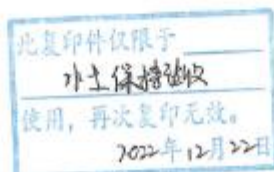 此复印件仅限于
水土保持验收
使用，再次复印无效。
2022年12月22日